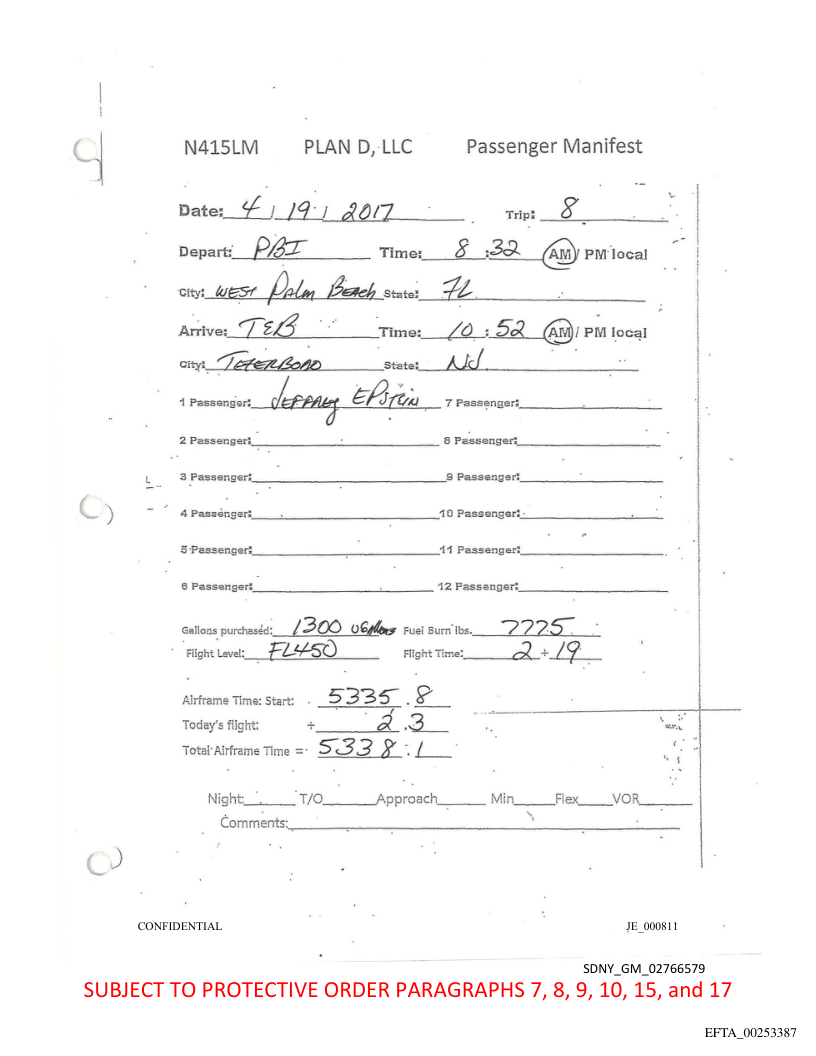 N415LM PLAN D, LLC Passenger Manifest
Date: 4 / 19 / 2017 Trip: 8
Depart: PBI Time: 8 : 32 AM / PM local
City: WEST PALM BEACH State: FL
Arrive: TEB Time: 10 : 52 AM / PM local
City: TETERBORO State: NJ
1 Passenger: JEFFREY EPSTEIN 7 Passenger:
2 Passenger: 8 Passenger:
3 Passenger: 9 Passenger:
4 Passenger: 10 Passenger:
5 Passenger: 11 Passenger:
6 Passenger: 12 Passenger:
Gallons purchased: 1300 Fuel Burn lbs. 7775
Flight Level: FL450 Flight Time: 2 + 19
Airframe Time: Start: 5335 . 8
Today's flight: + 2 . 3
Total Airframe Time = 5338 . 1
Night: T/O Approach Min Flex VOR
Comments:
CONFIDENTIAL JE_000811
SDNY_GM_02766579
SUBJECT TO PROTECTIVE ORDER PARAGRAPHS 7, 8, 9, 10, 15, and 17
EFTA_00253387